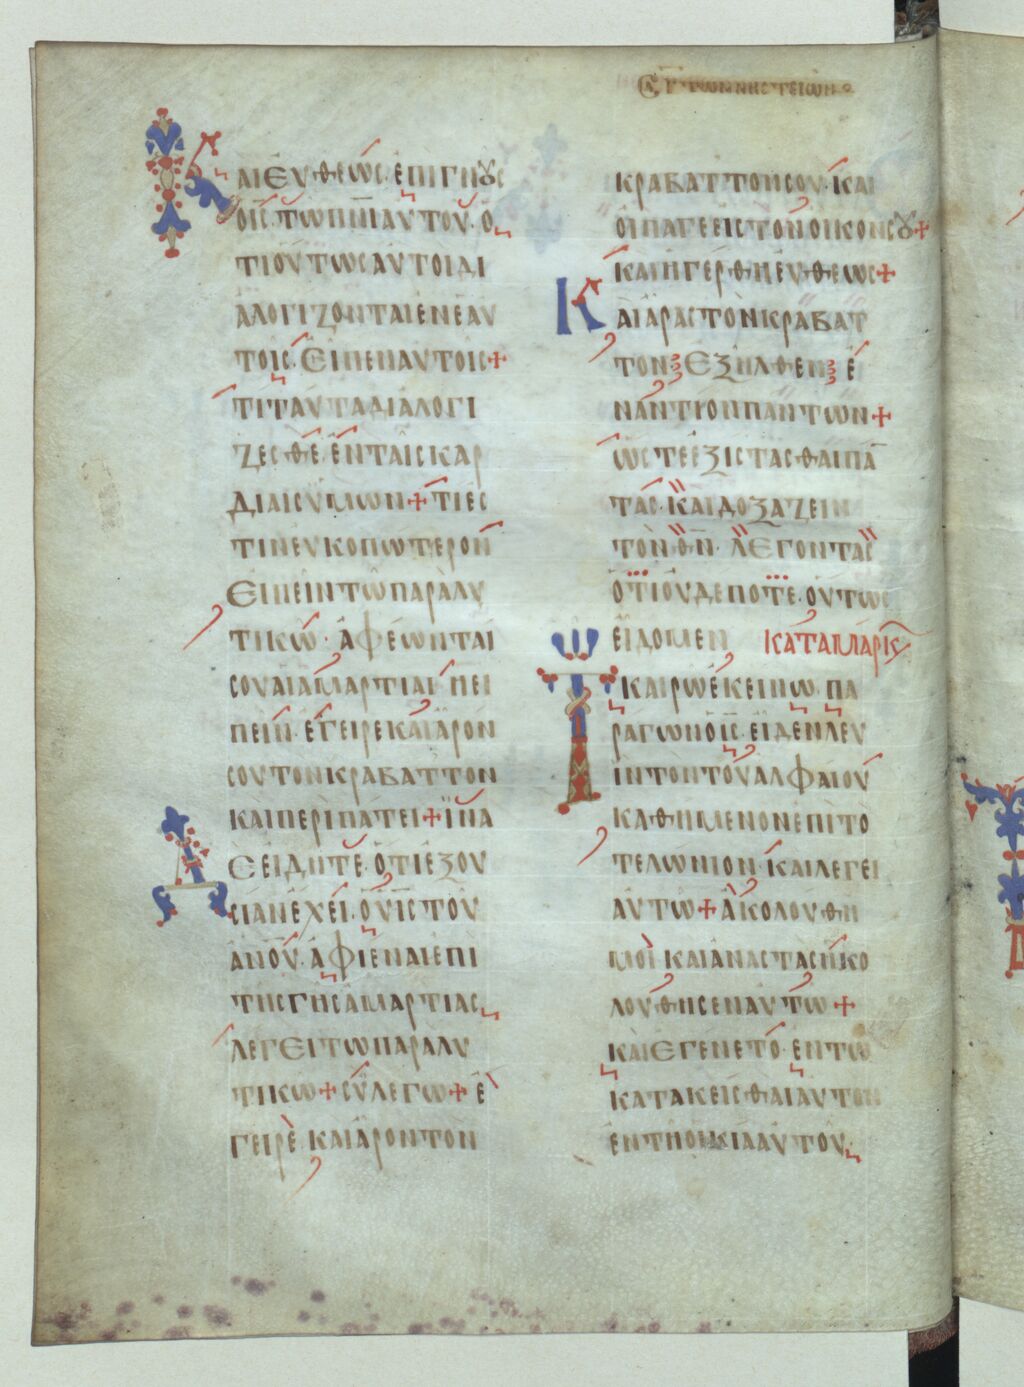 ΣΑ Γ ΤΩΝ ΝΗΣΤΕΙΩΝ
ΚΑΙ ΕΥΘΕΩΣ ΕΠΙΓΝȢΣ
Ο ΙΣ ΤΩ ΠΝΙ ΑΥΤΟΥ· Ο
ΤΙ ΟΥΤΩΣ ΑΥΤΟΙ ΔΙ
ΑΛΟΓΙΖΟΝΤΑΙ ΕΝ ΕΑΥ
ΤΟΙΣ· ΕΙΠΕΝ ΑΥΤΟΙΣ+
ΤΙ ΤΑΥΤΑ ΔΙΑΛΟΓΙ
ΖΕΣΘΕ ΕΝ ΤΑΙΣ ΚΑΡ
ΔΙΑΙΣ ΥΜΩΝ+ ΤΙ ΕΣ
ΤΙΝ ΕΥΚΟΠΩΤΕΡΟΝ
ΕΙΠΕΙΝ ΤΩ ΠΑΡΑΛΥ
ΤΙΚΩ· ΑΦΕΩΝΤΑΙ
ΣΟΥ ΑΙ ΑΜΑΡΤΙΑΙ· Η ΕΙ
ΠΕΙΝ· ΕΓΕΙΡΕ ΚΑΙ ΑΡΟΝ
ΣΟΥ ΤΟΝ ΚΡΑΒΑΤΤΟΝ
ΚΑΙ ΠΕΡΙΠΑΤΕΙ+ ΙΝΑ
ΔΕ ΕΙΔΗΤΕ· ΟΤΙ ΕΞΟΥ
ΣΙΑΝ ΕΧΕΙ· Ο ΥΙΣ ΤΟΥ
ΑΝΟΥ· ΑΦΙΕΝΑΙ ΕΠΙ
ΤΗΣ ΓΗΣ ΑΜΑΡΤΙΑΣ
ΛΕΓΕΙ ΤΩ ΠΑΡΑΛΥ
ΤΙΚΩ+ ΣΥ ΛΕΓΩ+ Ε
ΓΕΙΡΕ· ΚΑΙ ΑΡΟΝ ΤΟΝ
ΚΡΑΒΑΤΤΟΝ ΣΟΥ· ΚΑΙ
ΟΙΠΑΓΕ ΕΙΣ ΤΟΝ ΟΙΚΟΝ ΣȢ+
ΚΑΙ ΗΓΕΡΘΗ ΕΥΘΕΩΣ+
ΚΑΙ ΑΡΑΣ ΤΟΝ ΚΡΑΒΑΤ
ΤΟΝ ΕΞΗΛΘΕΝ Ε
ΝΑΝΤΙΟΝ ΠΑΝΤΩΝ+
ΩΣΤΕ ΕΞΙΣΤΑΣΘΑΙ ΠΑ̅
ΤΑΣ· ΚΑΙ ΔΟΞΑΖΕΙΝ
ΤΟΝ ΘΝ· ΛΕΓΟΝΤΑΣ
ΟΤΙ ΟΥΔΕΠΟΤΕ· ΟΥΤΩΣ
ΕΙΔΟΜΕΝ ΚΑΤΑ ΜΑΡΚ
ΤΩ ΚΑΙΡΩ ΕΚΕΙΝΩ· ΠΑ
ΡΑΓΩΝ Ο ΙΣ· ΕΙΔΕΝ ΛΕΥ
ΙΝ ΤΟΝ ΤΟΥ ΑΛΦΑΙΟΥ
ΚΑΘΗΜΕΝΟΝ ΕΠΙ ΤΟ
ΤΕΛΩΝΙΟΝ· ΚΑΙ ΛΕΓΕΙ
ΑΥΤΩ+ ΑΚΟΛΟΥΘΗ
ΜΟΙ· ΚΑΙ ΑΝΑΣΤΑΣ ΗΚΟ
ΛΟΥΘΗΣΕΝ ΑΥΤΩ+
ΚΑΙ ΕΓΕΝΕΤΟ· ΕΝ ΤΩ
ΚΑΤΑΚΕΙΣΘΑΙ ΑΥΤΟΝ
ΕΝ ΤΗ ΟΙΚΙΑ ΑΥΤΟΥ